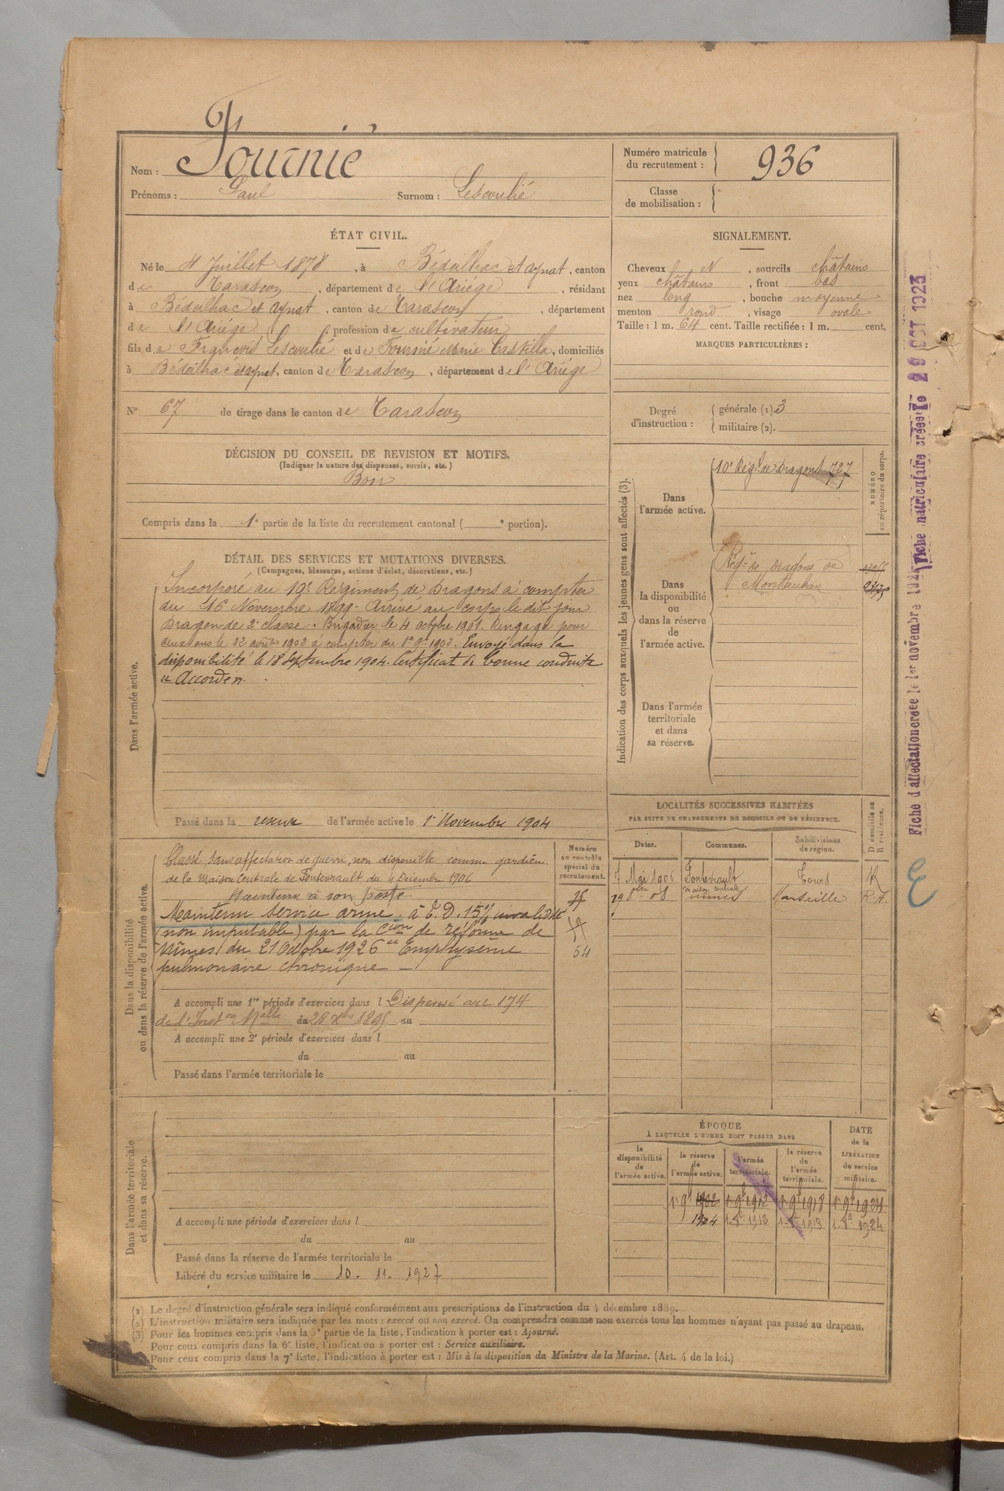 Nom : Fournié
Prénoms : Paul Surnom : Lescoulié
Numéro matricule du recrutement : 936
Classe de mobilisation :
ÉTAT CIVIL.
Né le 4 Juillet 1878, à Bédeilhac et Aynat, canton
de Tarascon, département de l'Ariège, résidant
à Bédeilhac et Aynat, canton de Tarascon, département
de l'Ariège, profession de cultivateur
fils de François Lescoulié et de Fournié Marie Castilla, domiciliés
à Bédeilhac et Aynat, canton de Tarascon, département de l'Ariège
N° 67 de tirage dans le canton de Tarascon
SIGNALEMENT.
Cheveux et N, sourcils châtains
yeux châtains, front bas
nez long, bouche moyenne
menton rond, visage ovale
Taille : 1 m. 64 cent. Taille rectifiée : 1 m. cent.
MARQUES PARTICULIÈRES :
Degré d'instruction : générale (1) 3
militaire (2).
DÉCISION DU CONSEIL DE REVISION ET MOTIFS.
(Indiquer la nature des dispenses, sursis, etc.)
Bon
Compris dans la 1e partie de la liste du recrutement cantonal ( e portion).
DÉTAIL DES SERVICES ET MUTATIONS DIVERSES.
(Campagnes, blessures, actions d'éclat, décorations, etc.)
Dans l'armée active.
Incorporé au 10e Régiment de Dragons à compter
du 16 Novembre 1899. Arrivé au corps le dit jour
Dragon de 2e classe. Brigadier le 4 octobre 1901. Rengagé pour
deux ans le 12 août 1902 à compter du 1er 9bre 1902. Envoyé dans la
disponibilité le 18 Septembre 1904. Certificat de bonne conduite
"Accordé".
Passé dans la réserve de l'armée active le 1er Novembre 1904
Indication des corps auxquels les jeunes gens sont affectés (3).
NUMÉRO au répertoire du corps.
Dans l'armée active.
10e Régt de Dragons 727
Dans la disponibilité ou dans la réserve de l'armée active.
Régt de Dragons de
Montauban
Dans l'armée territoriale et dans sa réserve.
Dans la disponibilité ou dans la réserve de l'armée active.
Numéro au contrôle spécial du recrutement.
Classé sans affectation de guerre, non disponible comme gardien
de la Maison Centrale de Fontevrault du 4 Décembre 1906
Maintenu à son poste
Maintenu service armé. à T. D. 15% invalidité
(non imputable) par la Cion de réforme de
Nîmes du 21 Octobre 1926 "Emphysème
pulmonaire chronique"
54
A accompli une 1re période d'exercices dans l Dispensé art 174
de l'Inston Melle du 28 Xbre 1895 au
A accompli une 2e période d'exercices dans l
du au
Passé dans l'armée territoriale le
LOCALITÉS SUCCESSIVES HABITÉES
PAR SUITE DE CHANGEMENTS DE DOMICILE OU DE RÉSIDENCE.
Dates. Communes. Subdivisions de région. D. domicile ou R. résidence.
7 Mai 1906 Fontevrault Tours R
19 08 Maison centrale Nîmes Marseille R
Dans l'armée territoriale et dans sa réserve.
A accompli une période d'exercices dans l
du au
Passé dans la réserve de l'armée territoriale le
Libéré du service militaire le 10. 11. 1927
ÉPOQUE
À LAQUELLE L'HOMME DOIT PASSER DANS
DATE de la LIBÉRATION du service militaire.
la disponibilité de l'armée active. la réserve de l'armée active. l'armée territoriale. la réserve de l'armée territoriale.
1er 9bre 1902 1er 9bre 1912 1er 9bre 1918 1er 9bre 1924
1904
(1) Le degré d'instruction générale sera indiqué conformément aux prescriptions de l'instruction du 4 décembre 1889.
(2) L'instruction militaire sera indiquée par les mots : exercé ou non exercé. On comprendra comme non exercés tous les hommes n'ayant pas passé au drapeau.
(3) Pour les hommes compris dans la 5e partie de la liste, l'indication à porter est : Ajourné.
Pour ceux compris dans la 6e liste, l'indication à porter est : Service auxiliaire.
Pour ceux compris dans la 7e liste, l'indication à porter est : Mis à la disposition du Ministre de la Marine. (Art. 4 de la loi.)
Fiche d'affectation créée le 1er novembre 192
Fiche matriculaire créée le 29 OCT 1923